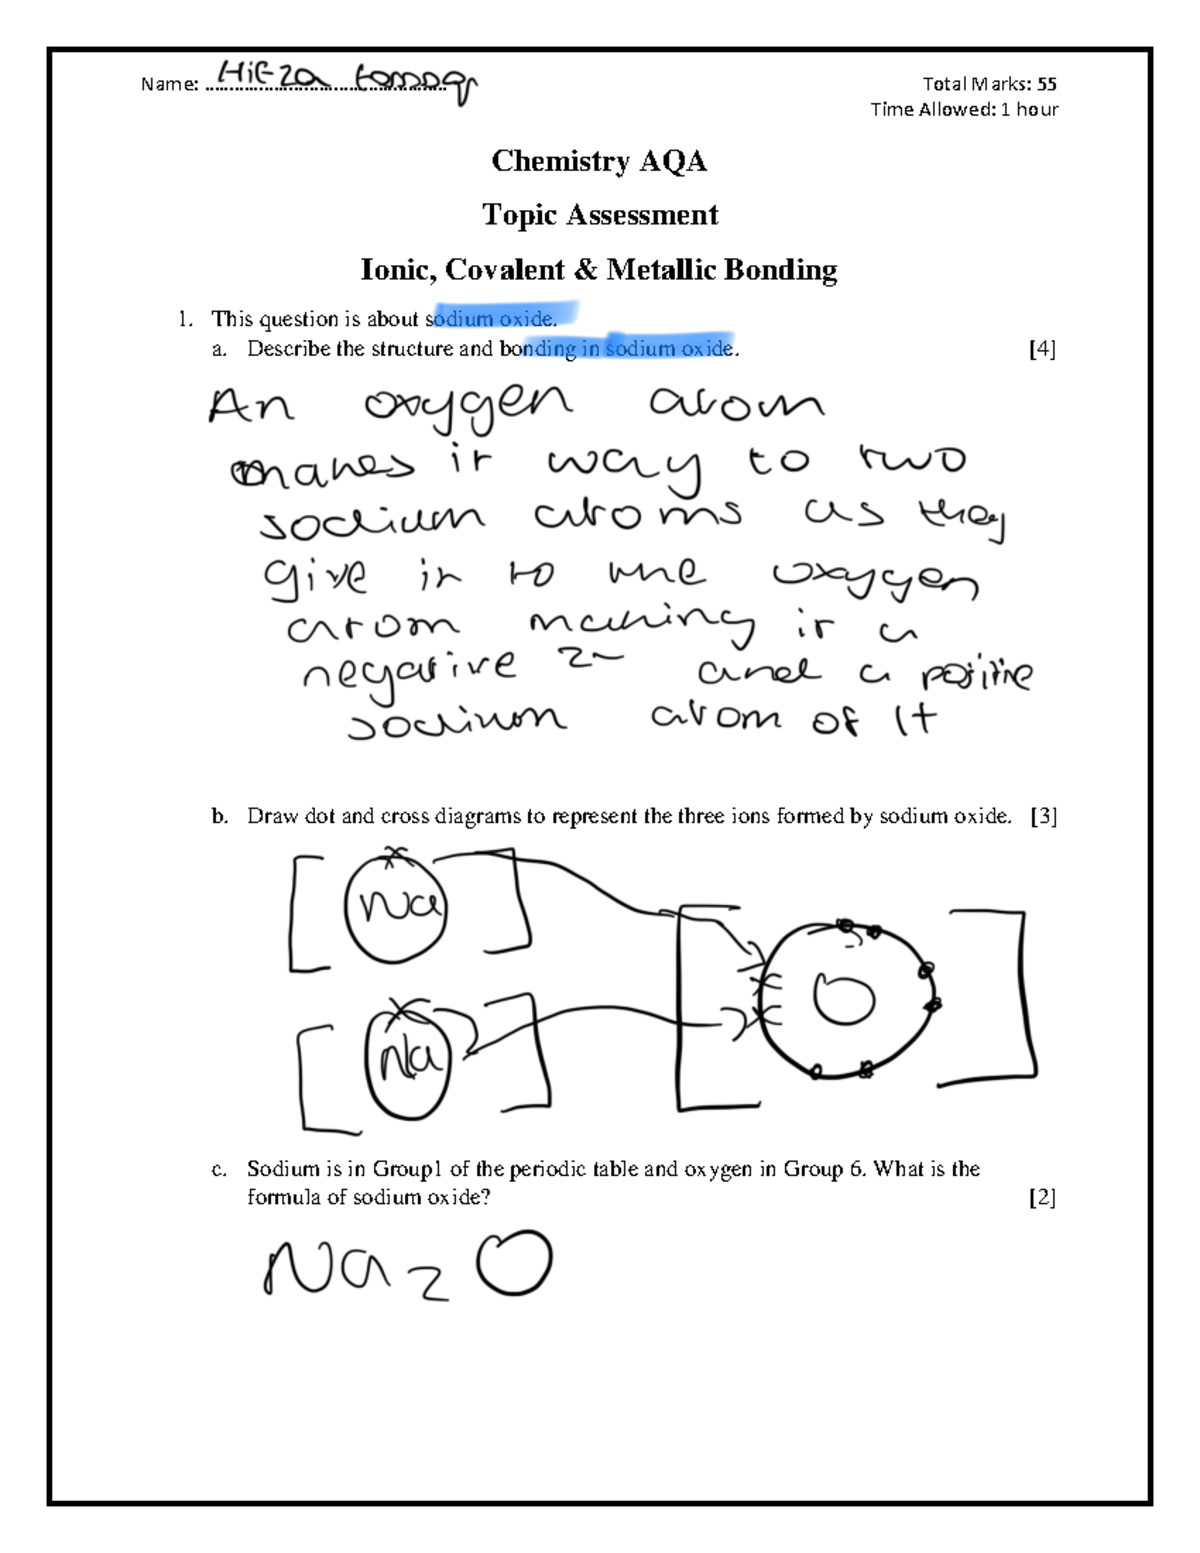 Name: ..........
Total Marks: 55
Time Allowed: 1 hour
Chemistry AQA
Topic Assessment
Ionic, Covalent & Metallic Bonding
1. This question is about sodium oxide.
a. Describe the structure and bonding in sodium oxide. [4]
An oxygen atom
makes it way to two
sodium atoms as they
give it to the oxygen
atom making it a
negative 2- and a positive
sodium atom of 1+
b. Draw dot and cross diagrams to represent the three ions formed by sodium oxide. [3]
Na
O
Na
c. Sodium is in Group1 of the periodic table and oxygen in Group 6. What is the
formula of sodium oxide? [2]
Na2O